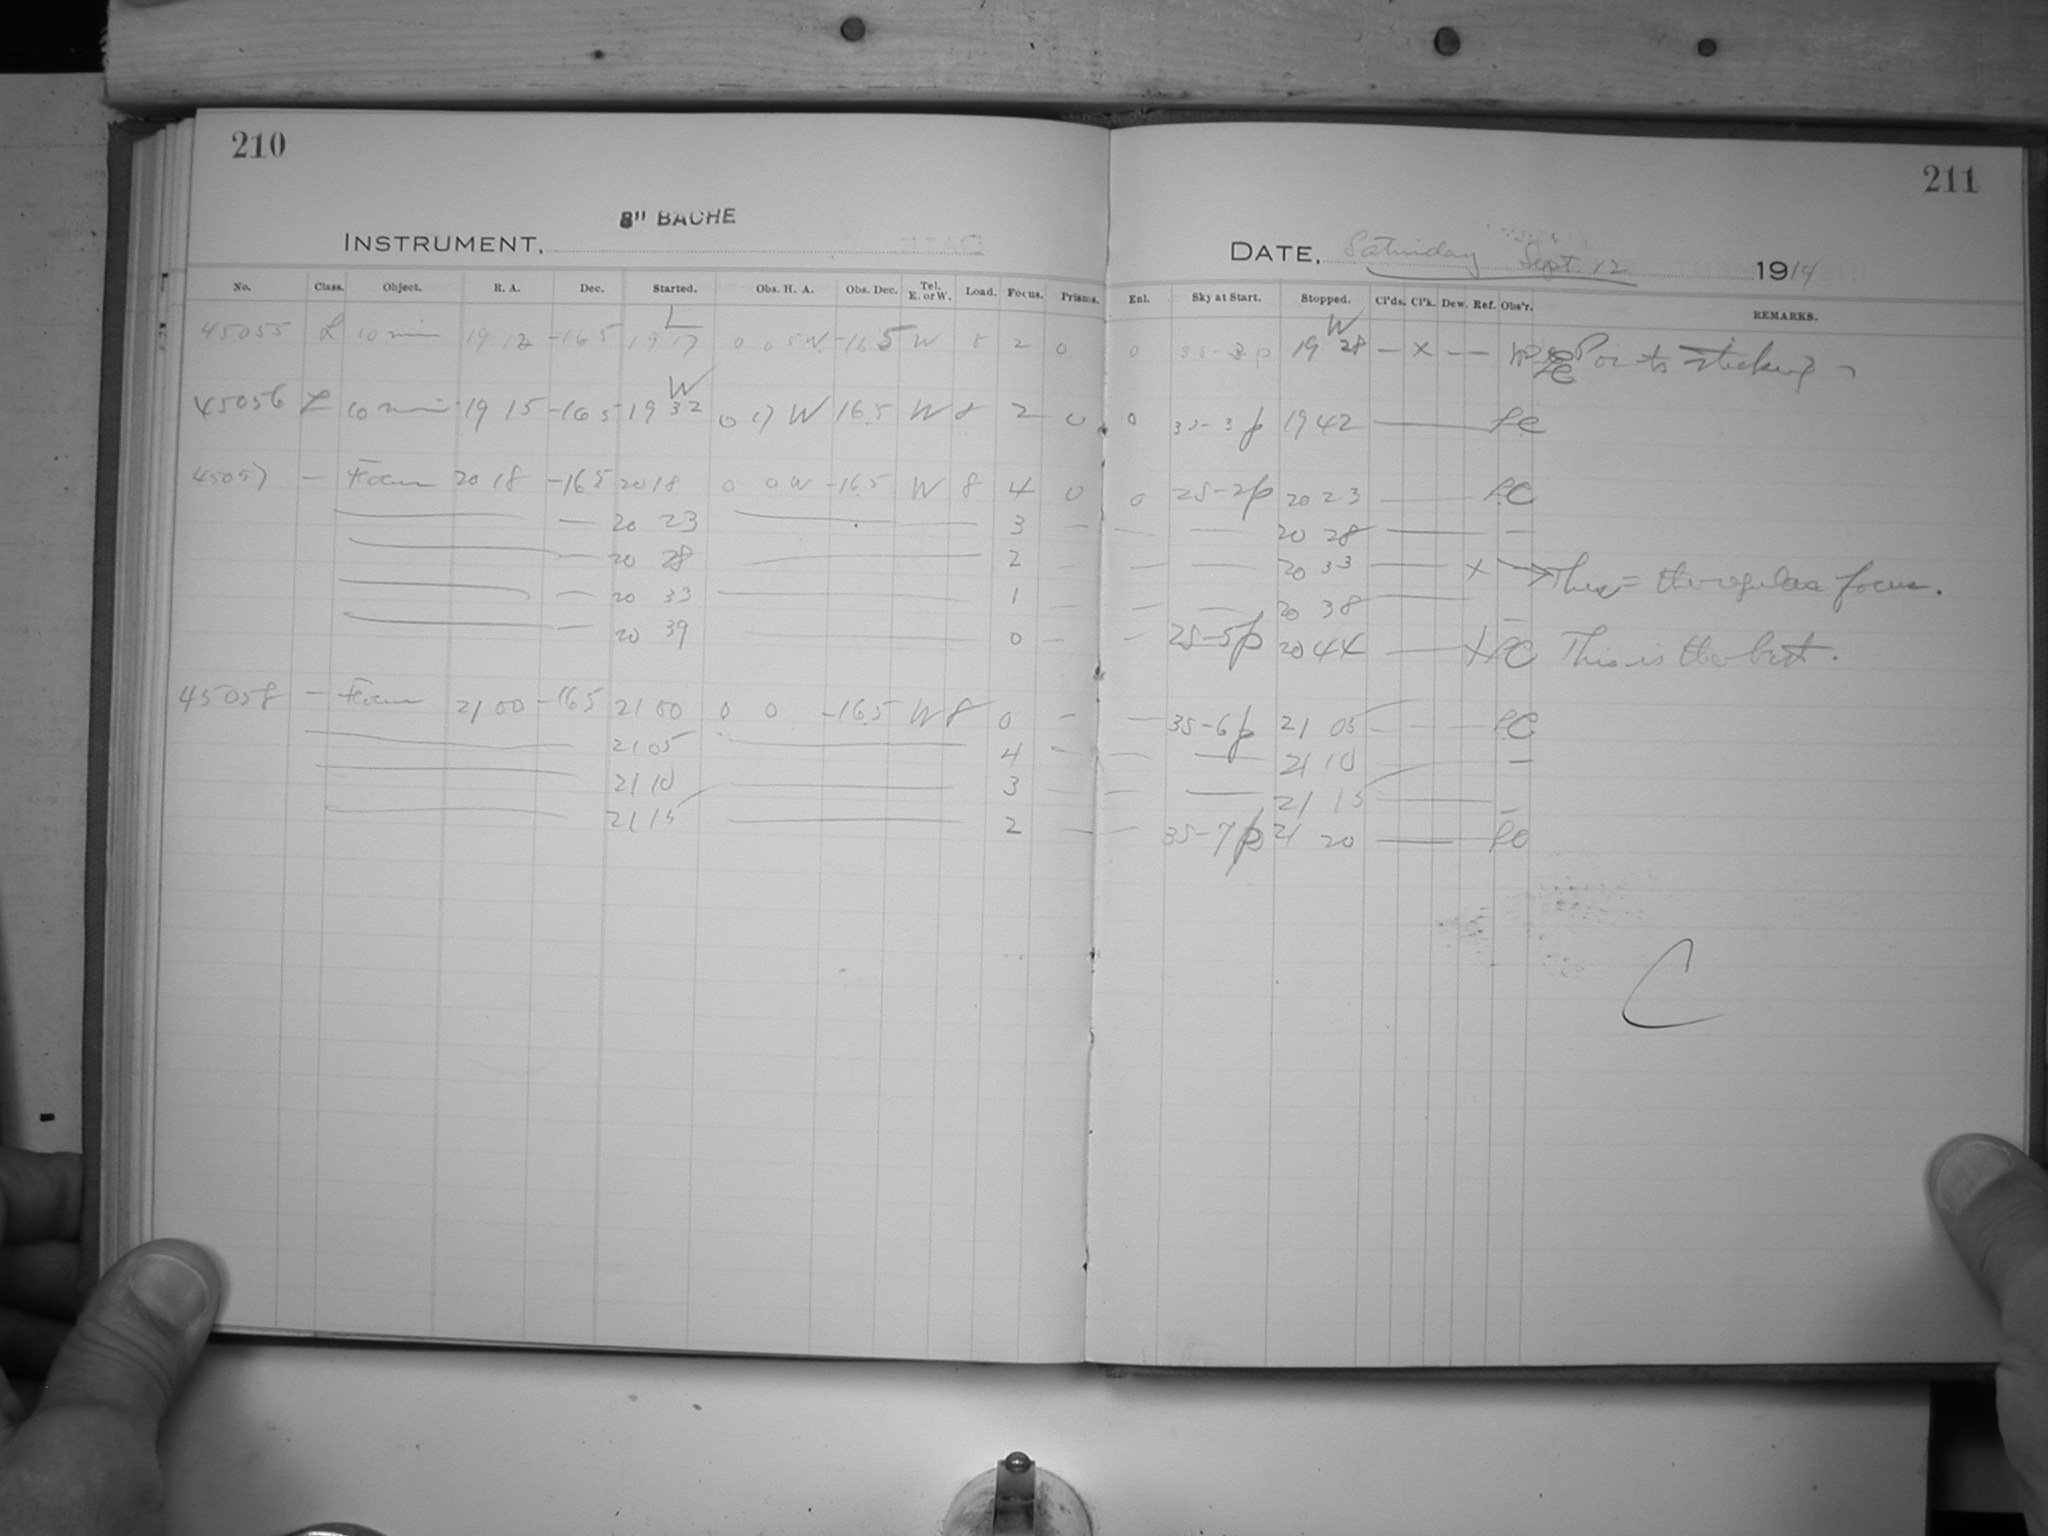 210
8" BACHE
INSTRUMENT,
No. Class. Object. R. A. Dec. Started. Obs. H. A. Obs. Dec. Tel. E. or W. Load. Focus. Prisms.
L
45055 L 10 min 19 12 -16.5 19 17 0 05 W -16.5 W 8 2 0
W
45056 L 10 min 19 15 -16.5 19 32 0 17 W 16.5 W 8 2 0
45057 — Focus 20 18 -16.5 20 18 0 0 W -16.5 W 8 4 0
— 20 23 — 3 —
— 20 28 — 2 —
— 20 33 — 1 —
— 20 39 — 0 —
45058 — Focus 21 00 -16.5 21 00 0 0 -16.5 W 8 0 —
— 21 05 — 4 —
— 21 10 — 3 —
— 21 15 — 2 —
211
DATE, Saturday Sept 12 1914
Enl. Sky at Start. Stopped. Cl'ds. Cl'k. Dew. Ref. Obs'r. REMARKS.
W
0 3s-3p 19 28 — x — — Points sticking
0 3s-3p 19 42 — LC
0 2s-2p 20 23 — LC
— — 20 28 — —
— — 20 33 — x → This = the regular focus.
— — 20 38 — —
— 2s-5p 20 44 — x LC This is the best.
— 3s-6p 21 05 — LC
— — 21 10 — —
— — 21 15 — —
— 3s-7p 21 20 — LC
C